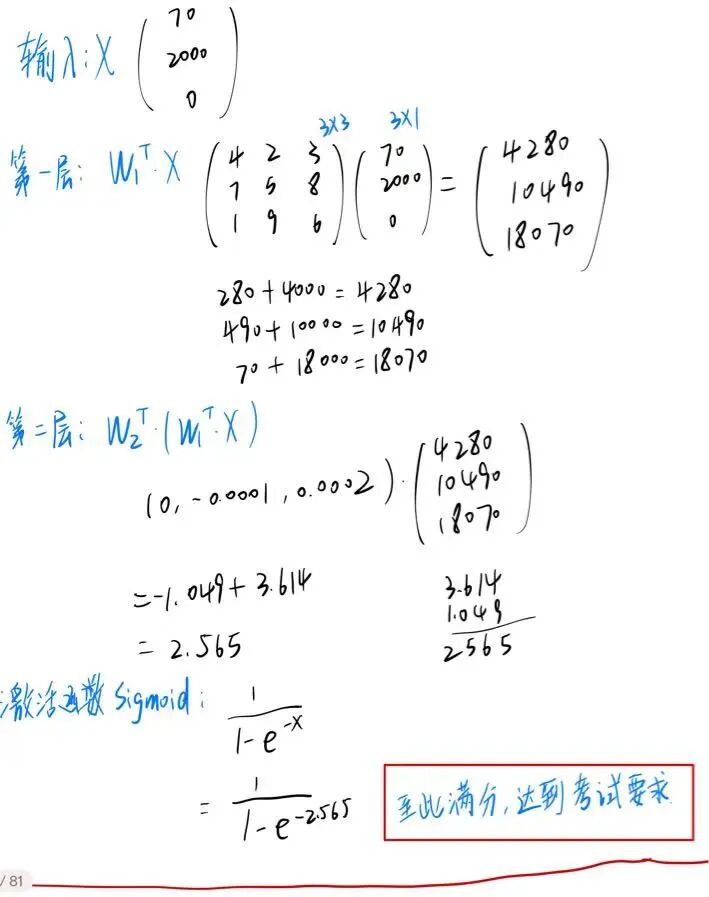 输入: X ( 70 2000 0 )
3×3 3×1
第一层: W₁ᵀ·X ( 4 2 3 7 5 8 1 9 6 ) ( 70 2000 0 ) = ( 4280 10490 18070 )
280+4000=4280
490+10000=10490
70+18000=18070
第二层: W₂ᵀ·(W₁ᵀ·X)
(0, -0.0001, 0.0002)·( 4280 10490 18070 )
=-1.049+3.614
= 2.565
3.614
1.049
2565
激活函数 Sigmoid: 1/(1-e^-x)
= 1/(1-e^-2.565)
至此满分, 达到考试要求
/ 81